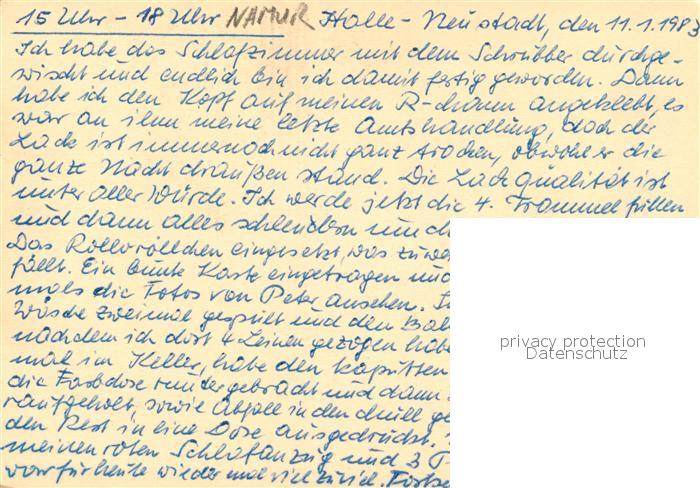 15 Uhr - 18 Uhr NAMUR Halle - Neustadt, den 11.1.1983
Ich habe das Schlafzimmer mit dem Schrubber durchge-
wischt und endlich bin ich damit fertig geworden. Dann
habe ich den Kopf auf meinen R- angeklebt, es
war an ihm meine letzte Amtshandlung, doch der
Lack ist immernoch nicht ganz trocken, obwohl er die
ganze Nacht draußen stand. Die Lackqualität ist
unter aller Würde. Ich werde jetzt die 4. Trommel füllen
und dann alles schleudern und
Das Rollvröllchen eingesetzt, was
fällt. Ein bunte Karte eingetragen und
mals die Fotos von Peter ansehen.
Wäsche zweimal gespült und den
nachdem ich dort 4 Leinen gezogen habe
mal im Keller, habe den kaputten
die Farbdose runtergebracht und dann
raufgeholt, sowie Abfälle in den
den Rest in eine Dose ausgedrückt.
meinen roten Schlafanzug und 3
war für heute wieder mal viel zuviel.
privacy protection
Datenschutz